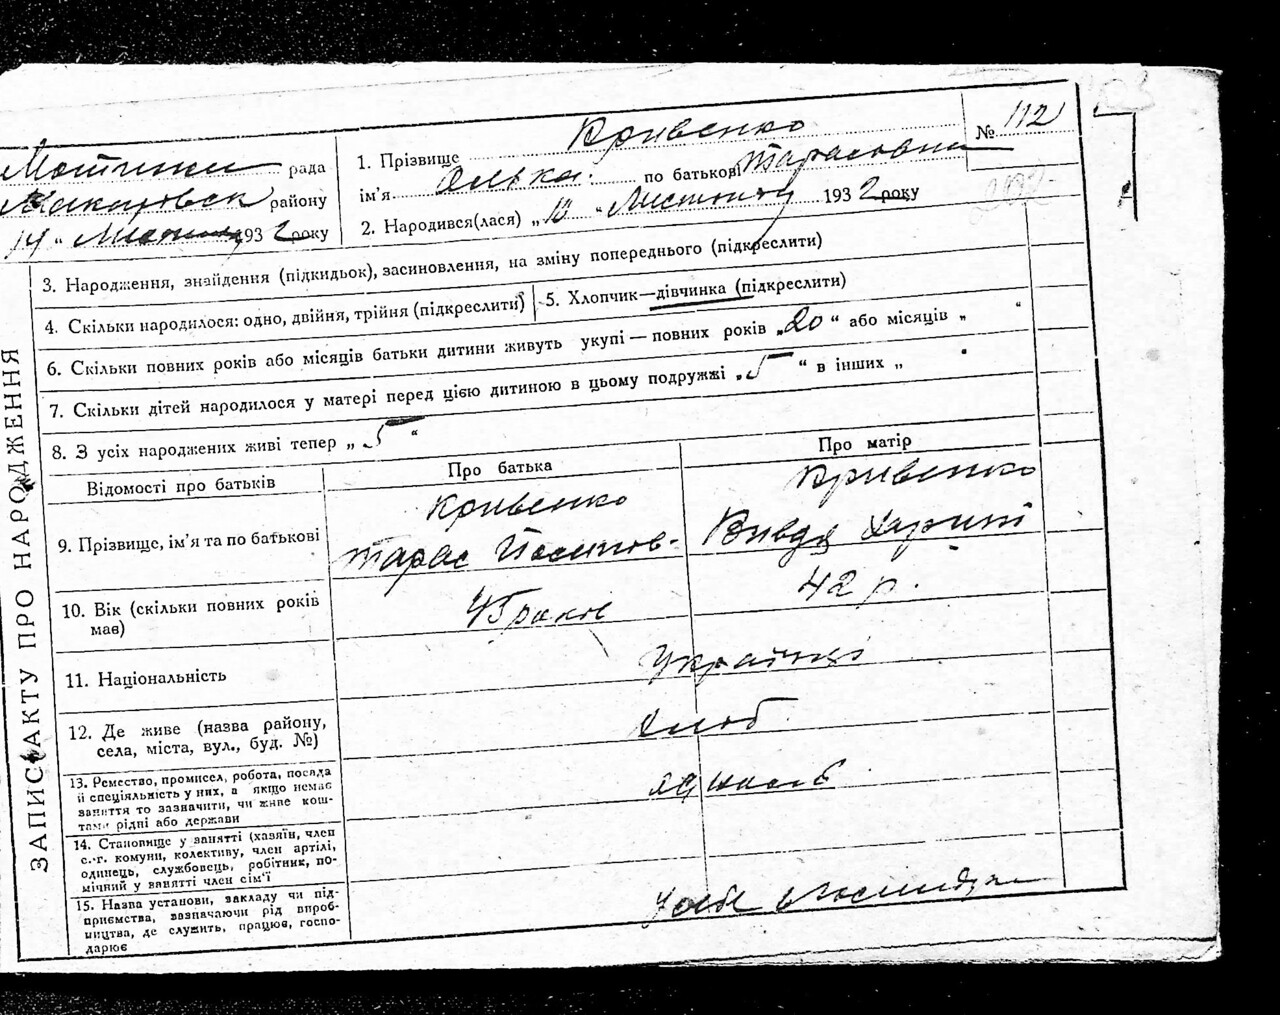 № 112
Мотижи рада
Макаровськ району
14 " Листопад 1932 року
1. Прізвище Кривенко
ім'я Олька по батькові Тарасовна
2. Народився(лася) „ 10 " Листопад 1932 року
3. Народження, знайдення (підкидьок), засиновлення, на зміну попереднього (підкреслити)
4. Скільки народилося: одно, двійня, трійня (підкреслити)
5. Хлопчик—дівчинка (підкреслити)
6. Скільки повних років або місяців батьки дитини живуть укупі — повних років „20" або місяців „ "
7. Скільки дітей народилося у матері перед цією дитиною в цьому подружжі „5" в інших „
8. З усіх народжених живі тепер „5"
ЗАПИС АКТУ ПРО НАРОДЖЕННЯ
Відомості про батьків
Про батька
Про матір
9. Прізвище, ім'я та по батькові
Кривенко
Тарас Йосипов-
Кривенко
10. Вік (скільки повних років
має)
45 років
42 р.
11. Національність
Українці
12. Де живе (назва району,
села, міста, вул., буд. №)
13. Ремество, промисел, робота, посада
й спеціяльність у них, а якщо немає
заняття то зазначити, чи живе кош-
тами рідні або держави
14. Становище у занятті (хазяїн, член
с.-г. комуни, колективу, член артілі,
одинець, службовець, робітник, по-
мічний у занятті член сім'ї
15. Назва установи, закладу чи під-
приємства, зазначаючи рід вироб-
ництва, де служить, працює, госпо-
дарює